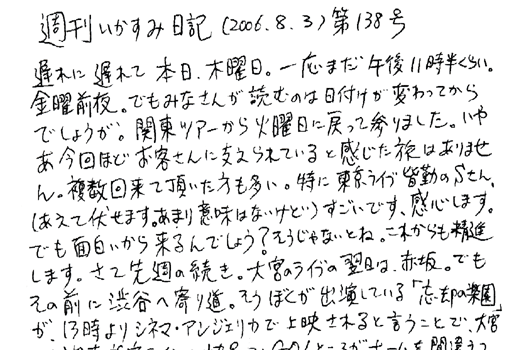 週刊いかすみ日記(2006.8.3)第138号
遅れに遅れて本日、木曜日。一応まだ午後11時半くらい。
金曜前夜。でもみなさんが読むのは日付けが変わってから
でしょうが。関東ツアーから火曜日に戻って参りました。いや
あ今回ほどお客さんに支えられていると感じた旅はありませ
ん。複数回来て頂いた方も多い。特に東京ライブ皆勤のSさん、
(あえて伏せます。あまり意味はないけど)すごいです、感心します。
でも面白いから来るんでしょう?そうじゃないとね。これからも精進
します。さて先週の続き。大宮のライブの翌日は、赤坂。でも
その前に渋谷へ寄り道。そうぼくが出演している「忘却の楽園」
が、13時よりシネマ・アンジェリカで上映されると言うことで、大宮